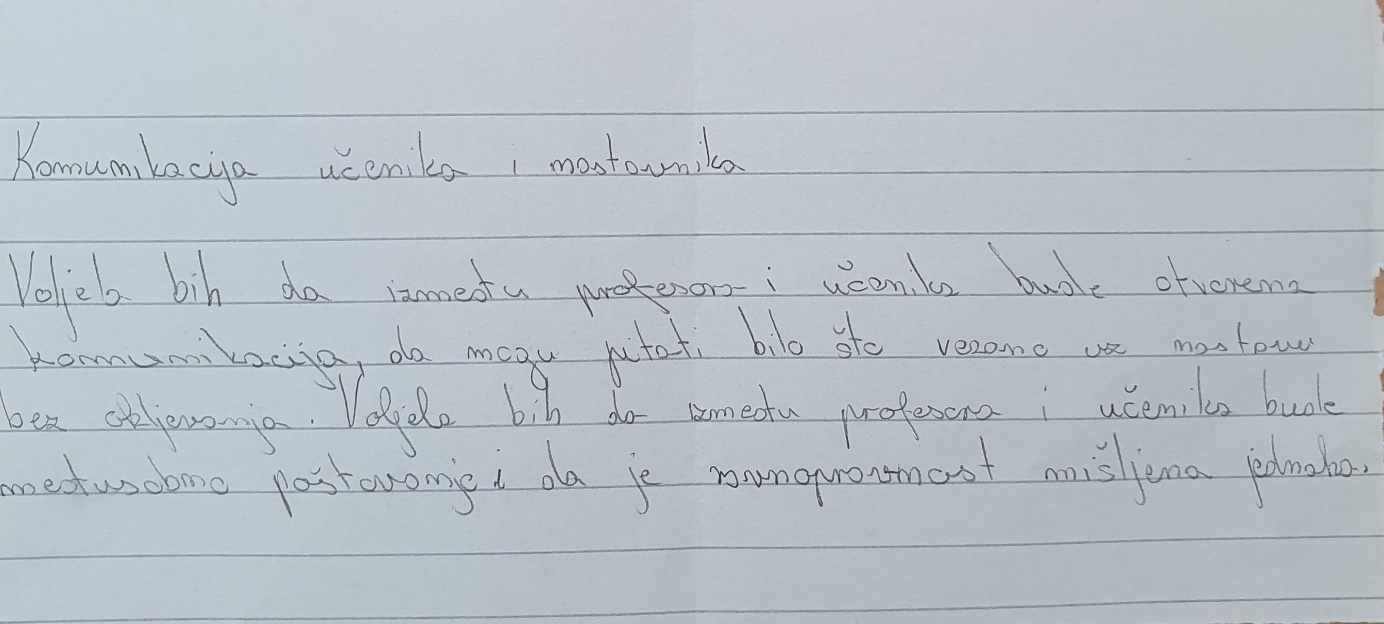 Komunikacija učenika i nastavnika
Voljela bih da između profesora i učenika bude otvorena
komunikacija, da mogu pitati bilo što vezano uz nastavu
bez Voljela bih da između profesora i učenika bude
međusobno poštovanje i da je ravnopravnost mišljena jednaka.